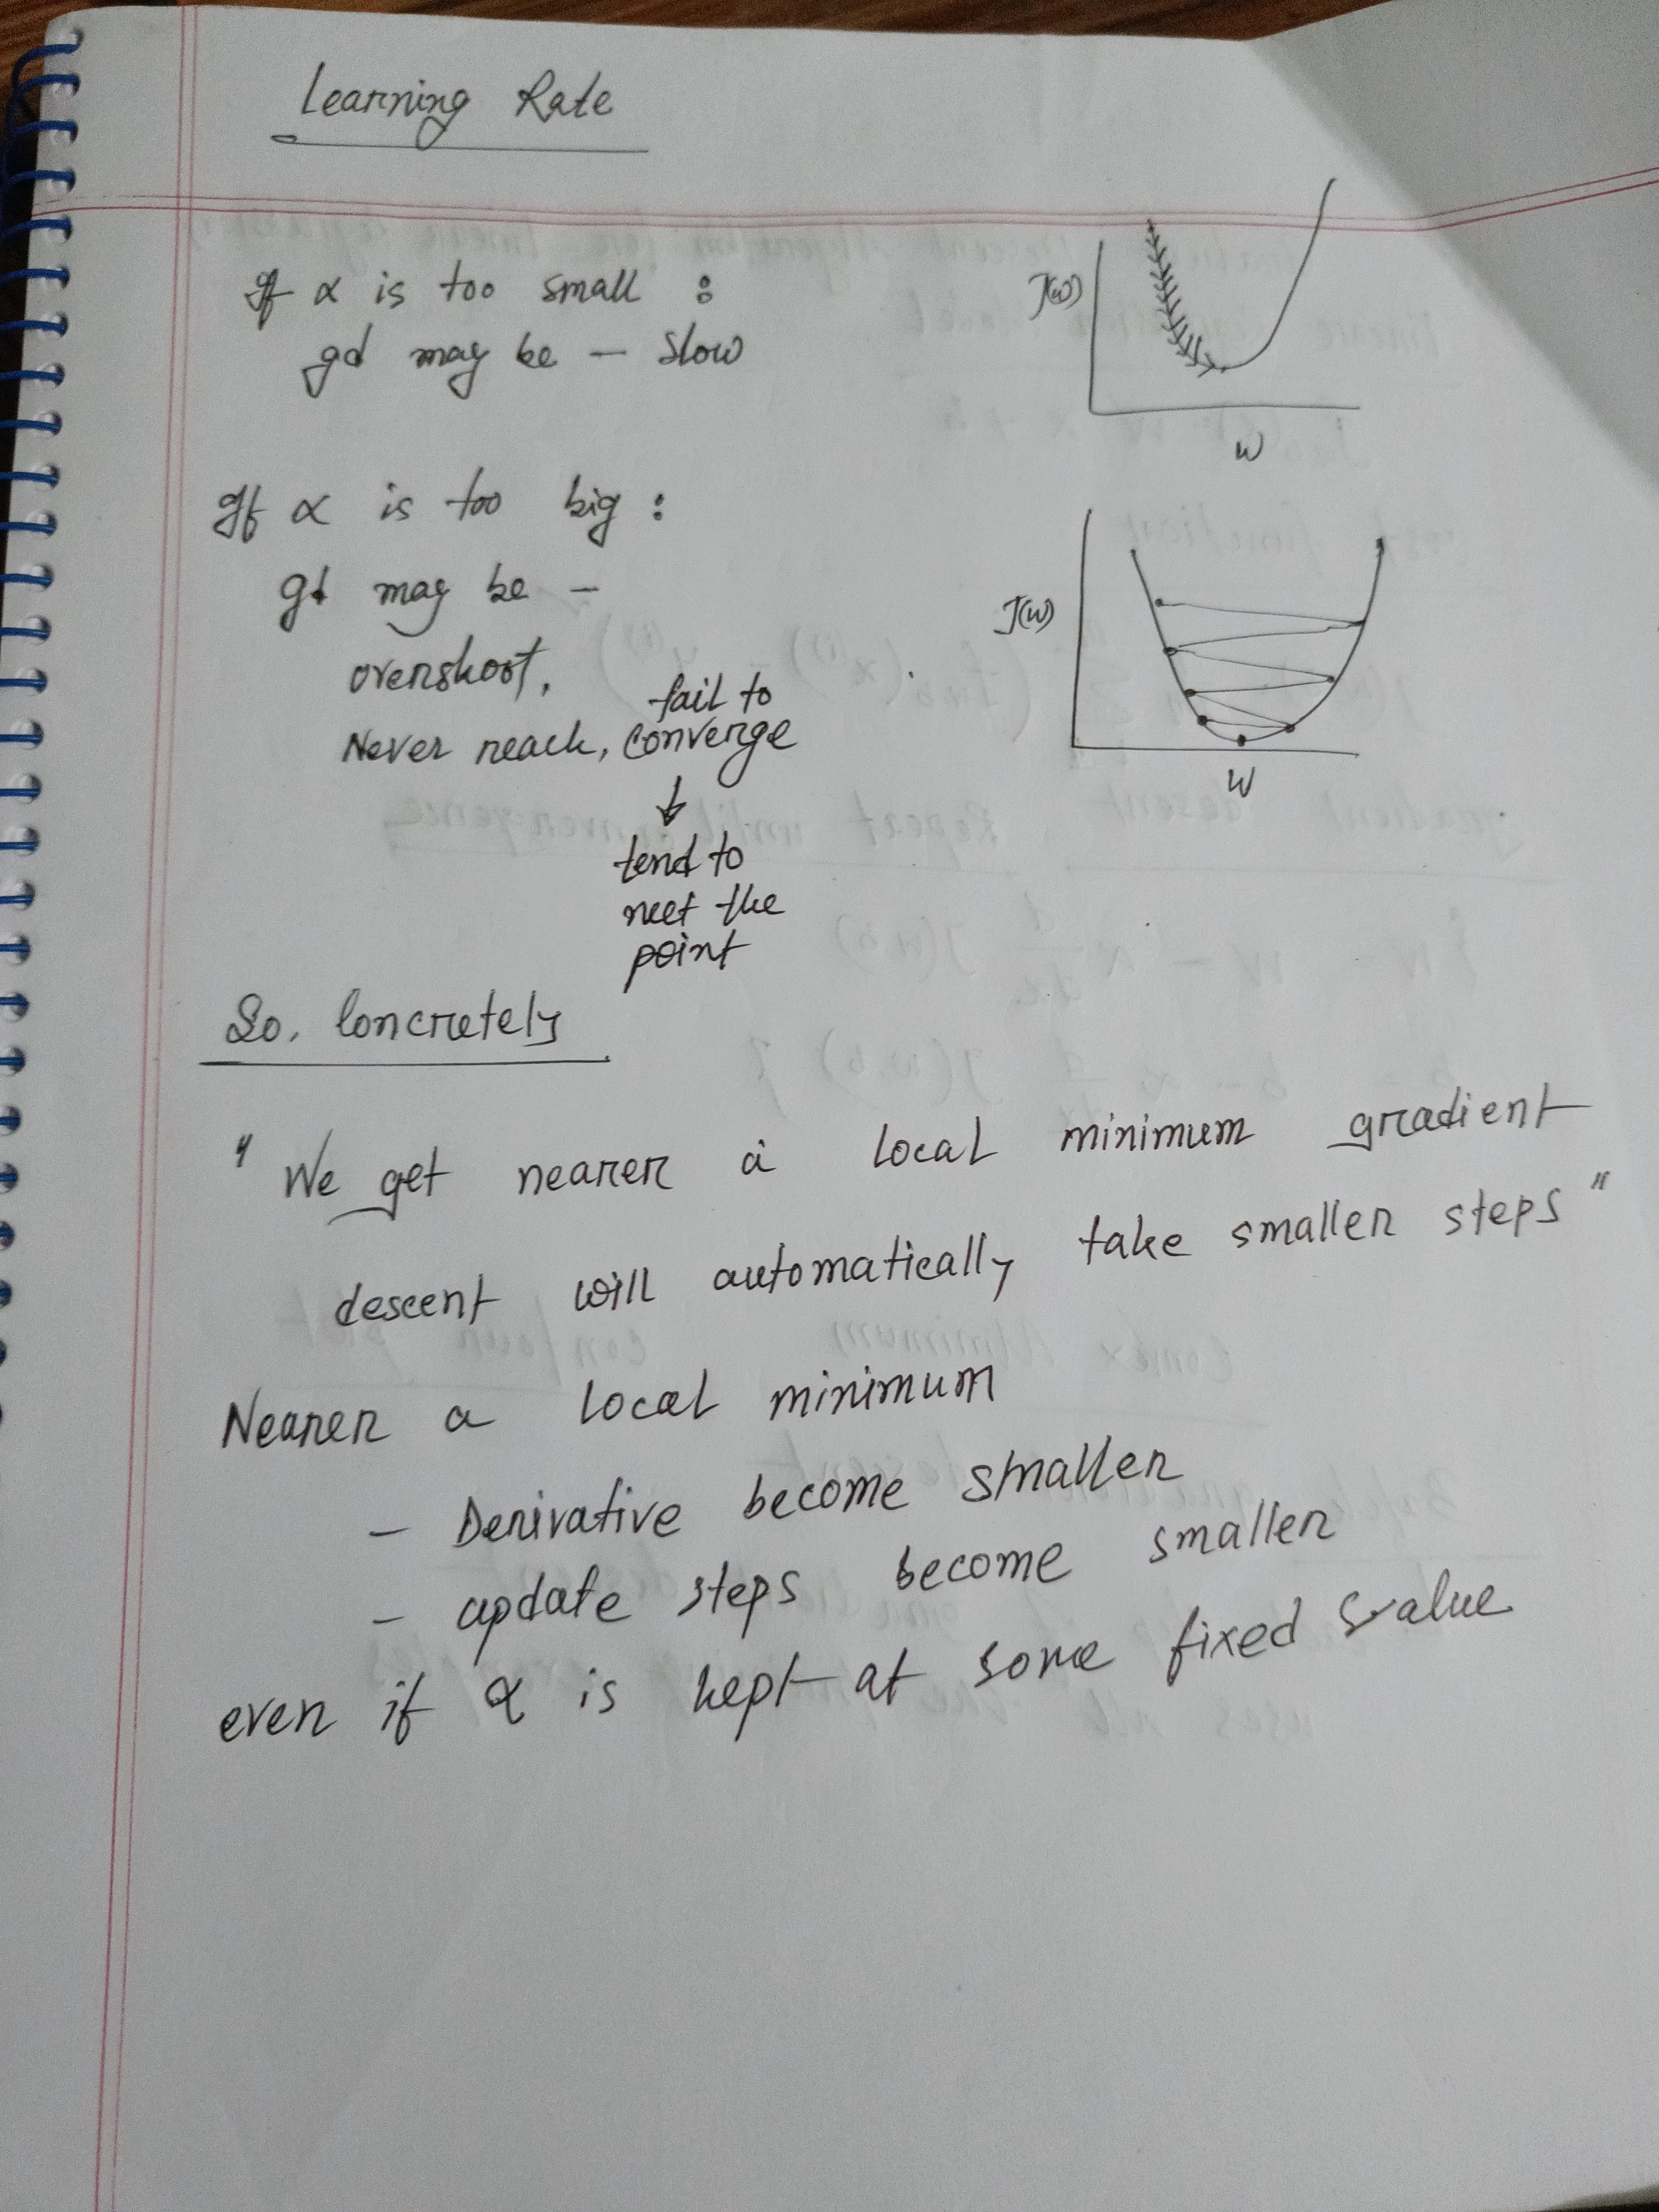 Learning Rate
If α is too small :
gd may be — slow
J(w)
w
If α is too big :
gd may be —
overshoot,
fail to
Never reach, converge
↓
tend to
meet the
point
J(w)
w
So, Concretely
" We get nearer a local minimum gradient
descent will automatically take smaller steps "
Nearer a local minimum
— Derivative become smaller
— update steps become smaller
even if α is kept at some fixed value